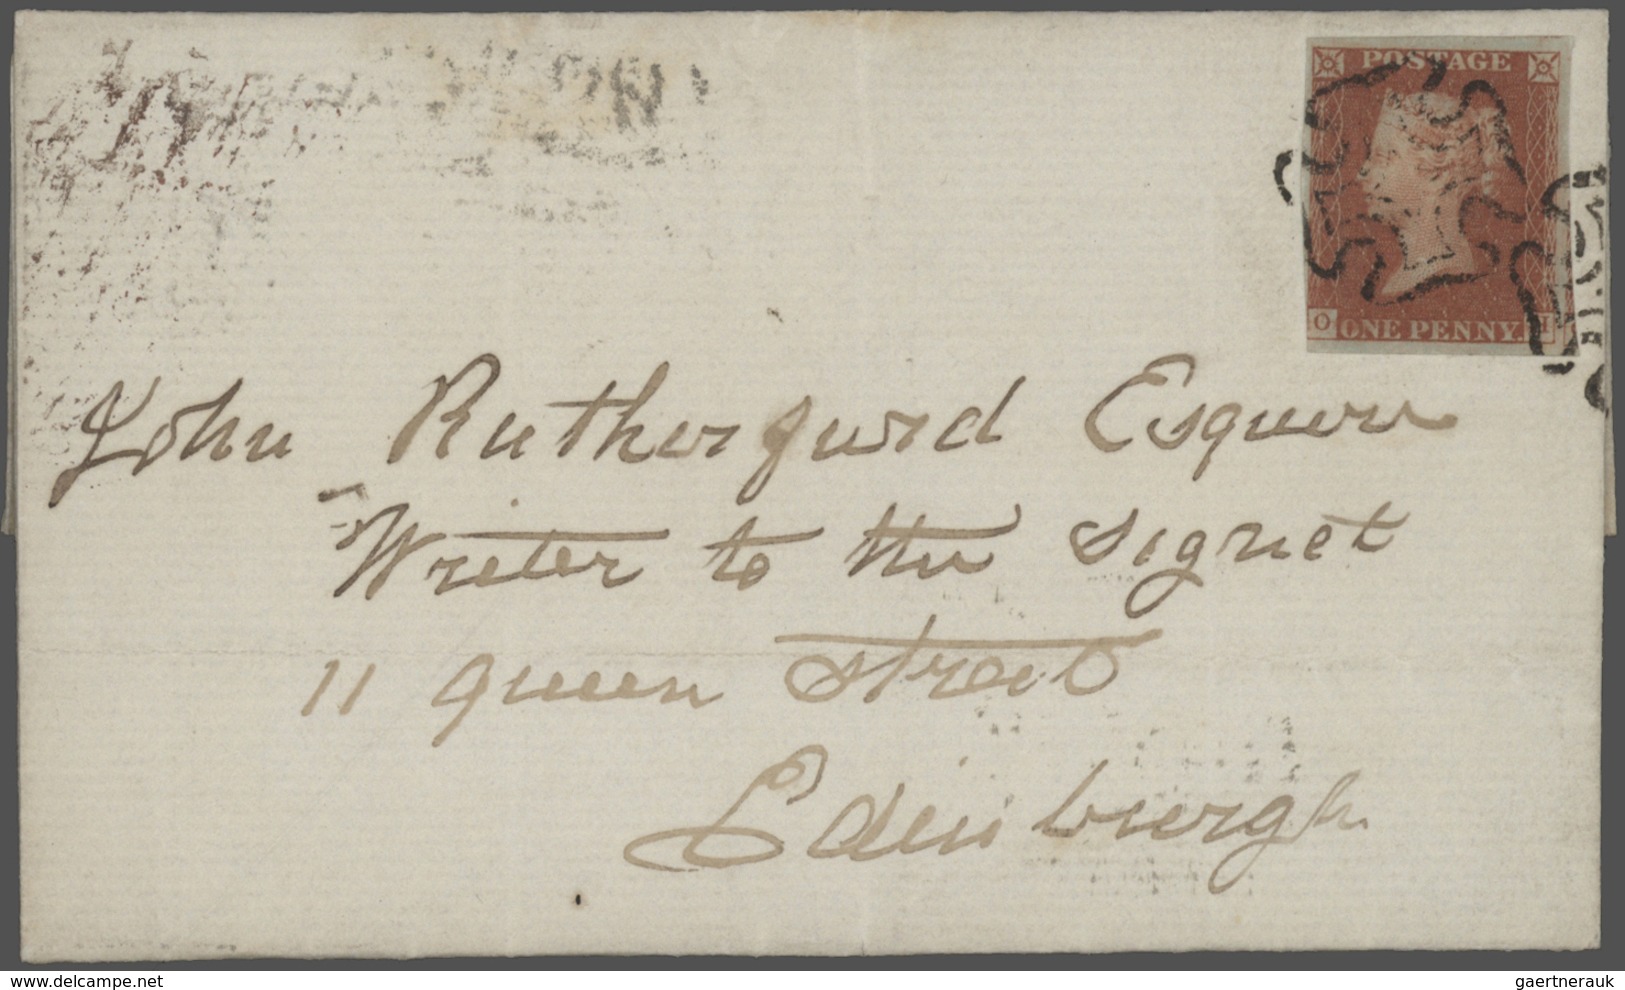 POSTAGE
O ONE PENNY. I
John Rutherfurd Esquire
Writer to the Signet
11 Queen Street
Edinburgh
www.delcampe.net
gaertnerauk